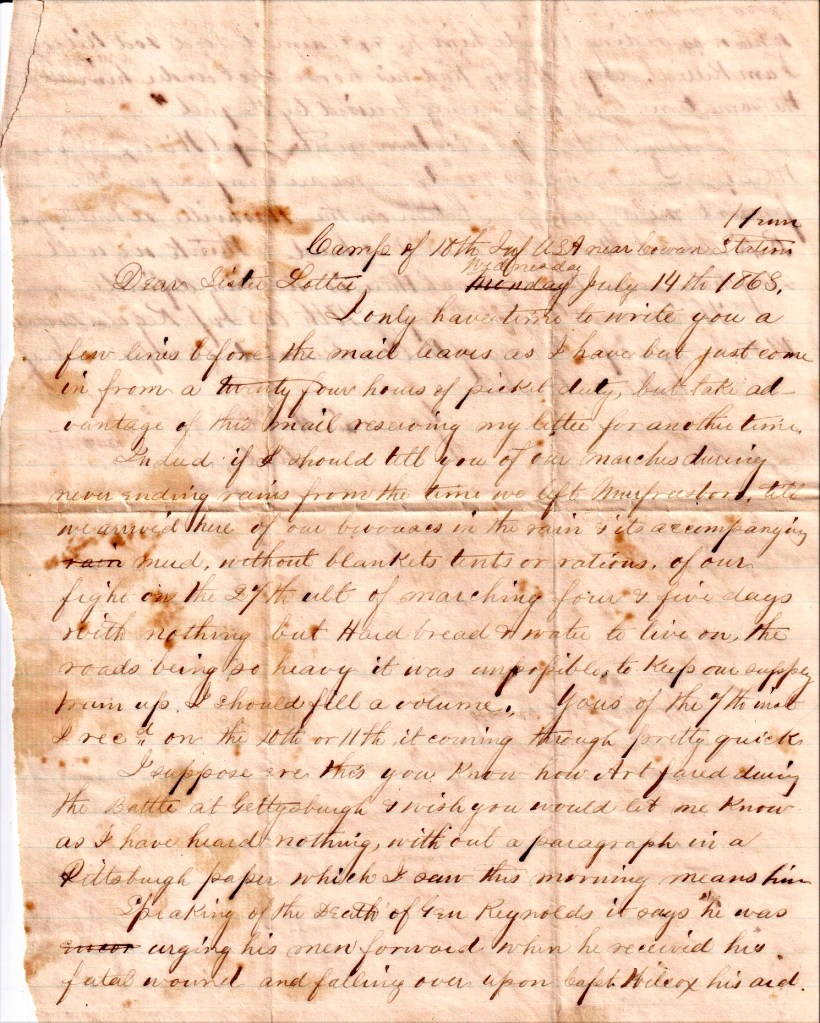 Tenn
Camp of 18th Inf USA near Cowan Station
Wednesday
Dear Sister Lottie Monday July 14th 1863.
I only have time to write you a
few lines before the mail leaves as I have but just come
in from a twenty four hours of picket duty, but take ad-
vantage of this mail reserving my letter for another time.
Indeed if I should tell you of our marches during
never ending rains from the time we left Murfreesboro, till
we arrived here of our bivouacs in the rain & its accompanying
rain mud, without blankets tents or rations, of our
fight on the 27th ult of marching four & five days
with nothing but Hard bread & water to live on, the
roads being so heavy it was impossible to keep our supply
train up. I should fill a volume. Yours of the 7th inst
I recd on the 10th or 11th it coming through pretty quick
I suppose ere this you know how Art fared during
the Battle at Gettysburgh & wish you would let me know
as I have heard nothing, without a paragraph in a
Pittsburgh paper which I saw this morning means him
Speaking of the Death of Gen Reynolds it says he was
urging his men forward when he received his
fatal wound and falling over upon Capt. Wilcox his aid.